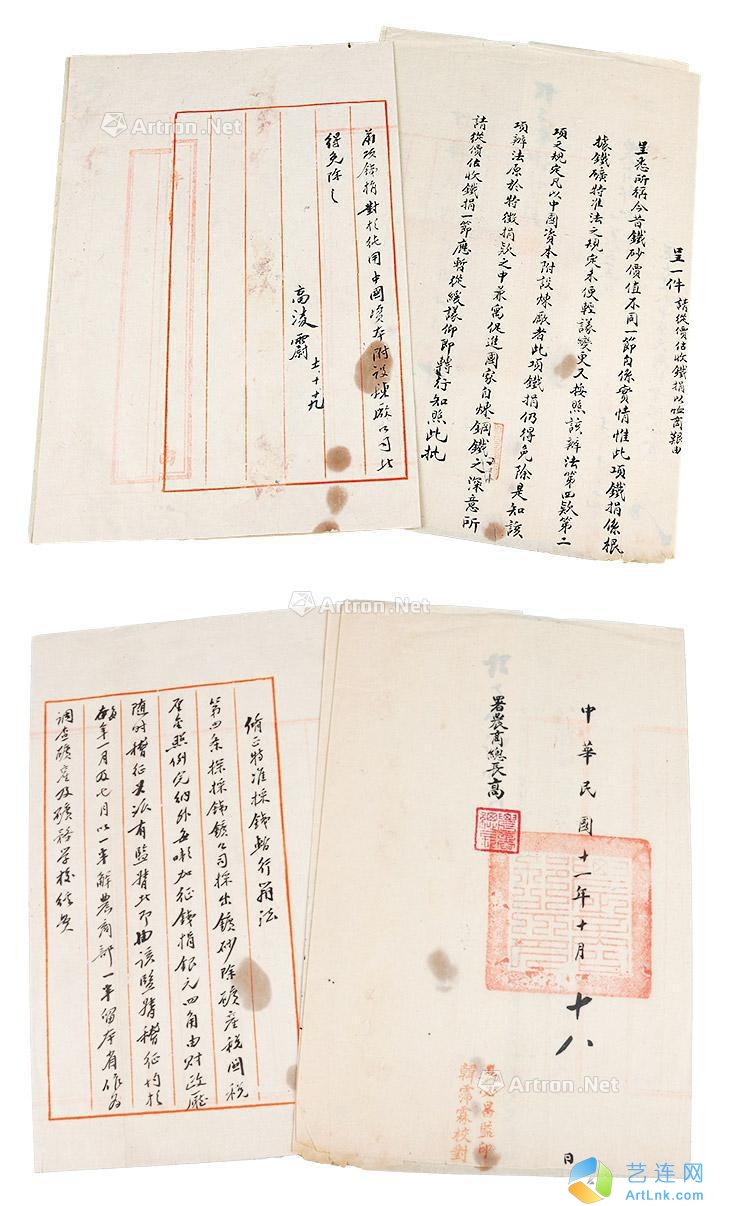 Artron.Net
呈一件 請從價估收鐵捐以恤商艱由
呈悉所稱今昔鐵砂價值不同一節自係實情惟此項鐵捐係根
據鐵礦特准法之規定未便輕議變更又按照該辦法第四款第二
項之規定凡以中國資本附設煉廠者此項鐵捐仍得免除是知該
項辦法原於特徵捐款之中兼寓促進國家自煉鋼鐵之深意所
請從價估收鐵捐一節應暫從緩議仰即轉行知照此批
Artron.Net
前項鉄捐對於純用中國資本附設煉廠公司此
得免除之
高凌霨
十一、十、十九
Artron.Net
中華民國十一年十月十八日
署農商總長高
監印
韓霈霖校對
Artron.Net
脩正特准採鉄暫行辦法
第四条 探採鉄鑛公司採出鑛砂除礦産稅國稅
應照例完納外每噸加征鉄捐銀元四角由財政廳
随时稽征其派有監督此即由該監督稽征均於
每年一月及七月以一半解農商部一半留本省作為
调查礦産及礦務学校经費
艺连网
ArtLnk.com